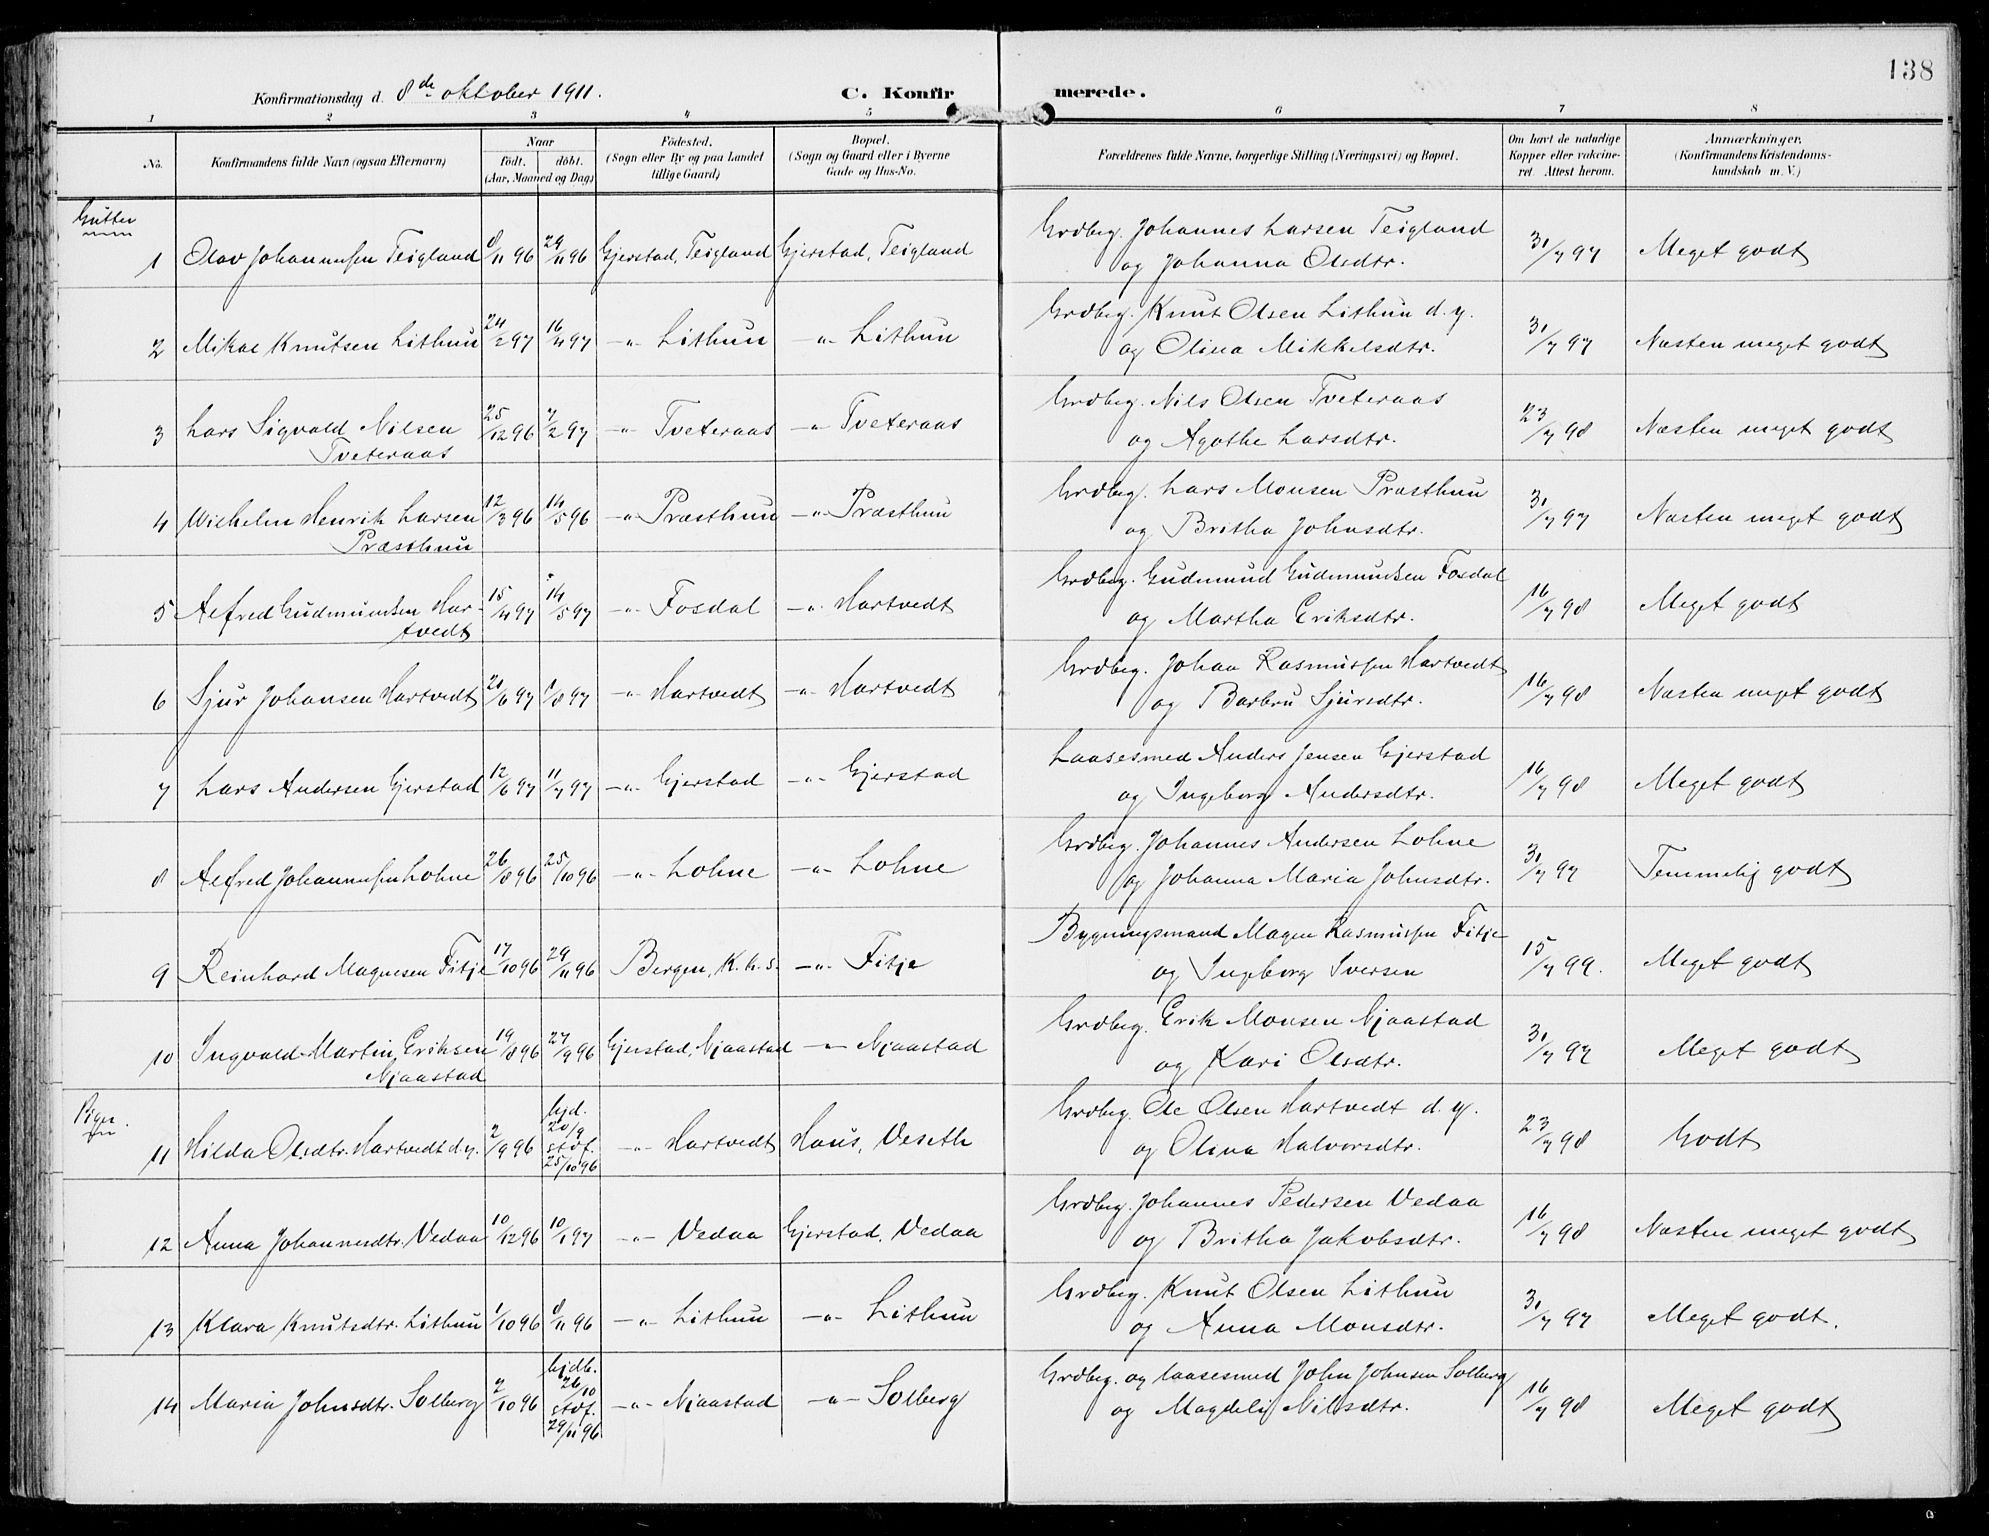 138
Konfirmationsdag d. 8de oktober 1911.
C. Konfirmerede.
1 2 3 4 5 6 7 8
No. Konfirmandens fulde Navn (ogsaa Efternavn) Naar født. døbt. (Aar, Maaned og Dag) Fødested. (Sogn eller By og paa Landet tillige Gaard) Bopæl. (Sogn og Gaard eller i Byerne Gade og Hus-No. Forældrenes fulde Navne, borgerlige Stilling (Næringsvei) og Bopæl. Om havt de naturlige Kopper eller vakcineret. Attest herom. Anmærkninger. (Konfirmandens Kristendomskundskab m. V.)
Gutter
1 Olav Johannessen Teigland 8/11 96 29/11 96 Gjerstad, Teigland Gjerstad, Teigland Grdbrg. Johannes Larsen Teigland
og Johanna Olsdtr. 31/7 97 Meget godt
2 Mikal Knutsen Lithun 24/2 97 16/4 97 -"- Lithun -"- Lithun Grdbrg. Knut Olsen Lithun d. y.
og Olina Mikkelsdtr. 31/7 97 Næsten meget godt
3 Lars Sigvald Nilsen 25/12 96 7/2 97 -"- Tveteraas -"- Tveteraas Grdbrg. Nils Olsen Tveteraas
Tveteraas og Agathe Larsdtr. 23/7 98 Næsten meget godt
4 Wilhelm Henrik Larsen 12/3 96 14/5 96 -"- Præsthun -"- Præsthun Grdbrg. Lars Monsen Præsthun
Præsthun og Britha Johnsdtr. 31/7 97 Næsten meget godt
5 Alfred Gudmundsen Har- 15/4 97 14/5 97 -"- Fosdal -"- Hartvedt Grdbrg. Gudmund Gudmundsen Fosdal
tvedt og Martha Eriksdtr. 16/7 98 Meget godt
6 Sjur Johansen Hartvedt 20/6 97 1/8 97 -"- Hartvedt -"- Hartvedt Grdbrg. Johan Rasmussen Hartvedt
og Barbru Sjursdtr. 16/7 98 Næsten meget godt
7 Lars Andersen Gjerstad 12/6 97 11/7 97 -"- Gjerstad -"- Gjerstad Laasesmed Anders Jensen Gjerstad
og Ingeborg Andersdtr. 16/7 98 Meget godt
8 Alfred Johannessen Lohne 26/8 96 25/10 96 -"- Lohne -"- Lohne Grdbrg. Johannes Andersen Lohne
og Johanna Maria Johnsdtr. 31/7 97 Temmelig godt
9 Reinhard Magnesen Fitje 17/10 96 29/11 96 Bergen, K. h. s. -"- Fitje Bygningsmand Magne Rasmussen Fitje
og Ingeborg Iversen 15/7 99. Meget godt
10 Ingvald Martin Eriksen 19/8 96 27/9 96 Gjerstad, Njaastad -"- Njaastad Grdbrg. Erik Monsen Njaastad
Njaastad og Kari Olsdtr. 31/7 97 Meget godt
Piger.
11 Hilda Olsdtr. Hartvedt d. y. 2/9 96 hjd. 20/9 stdf. 25/10 96 -"- Hartvedt Haus, Veseth Grdbrg. Ole Olsen Hartvedt d. y.
og Olina Halvorsdtr. 23/7 98 Godt
12 Anna Johannesdtr. Vedaa 10/12 96 10/1 97 -"- Vedaa Gjerstad, Vedaa Grdbrg. Johannes Pedersen Vedaa
og Britha Jakobsdtr. 16/7 98 Næsten meget godt
13 Klara Knutsdtr. Lithun 1/10 96 8/11 96 -"- Lithun -"- Lithun Grdbrg. Knut Olsen Lithun
og Anna Monsdtr. 31/7 97 Meget godt.
14 Maria Johnsdtr. Solberg 2/10 96 hjdb. 26/10 stdf. 29/11 96 -"- Njaastad -"- Solberg Grdbrg. og laasesmed John Johnsen Solberg
og Magdeli Nilsdtr. 16/7 98 Meget godt